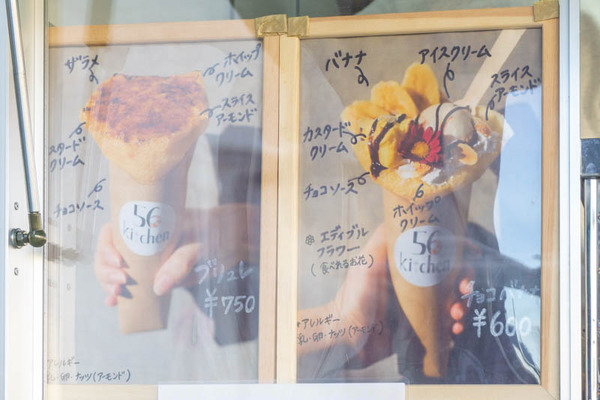 ザラメ
ホイップ
クリーム
スライス
アーモンド
スタード
クリーム
チョコソース
56
kitchen
ブリュレ
¥750
アレルギー
乳・卵・ナッツ(アーモンド)
バナナ
アイスクリーム
スライス
アーモンド
カスタード
クリーム
チョコソース
ホイップ
クリーム
エディブル
フラワー
(食べれるお花)
56
kitchen
チョコバナナ
¥600
アレルギー
乳・卵・ナッツ(アーモンド)